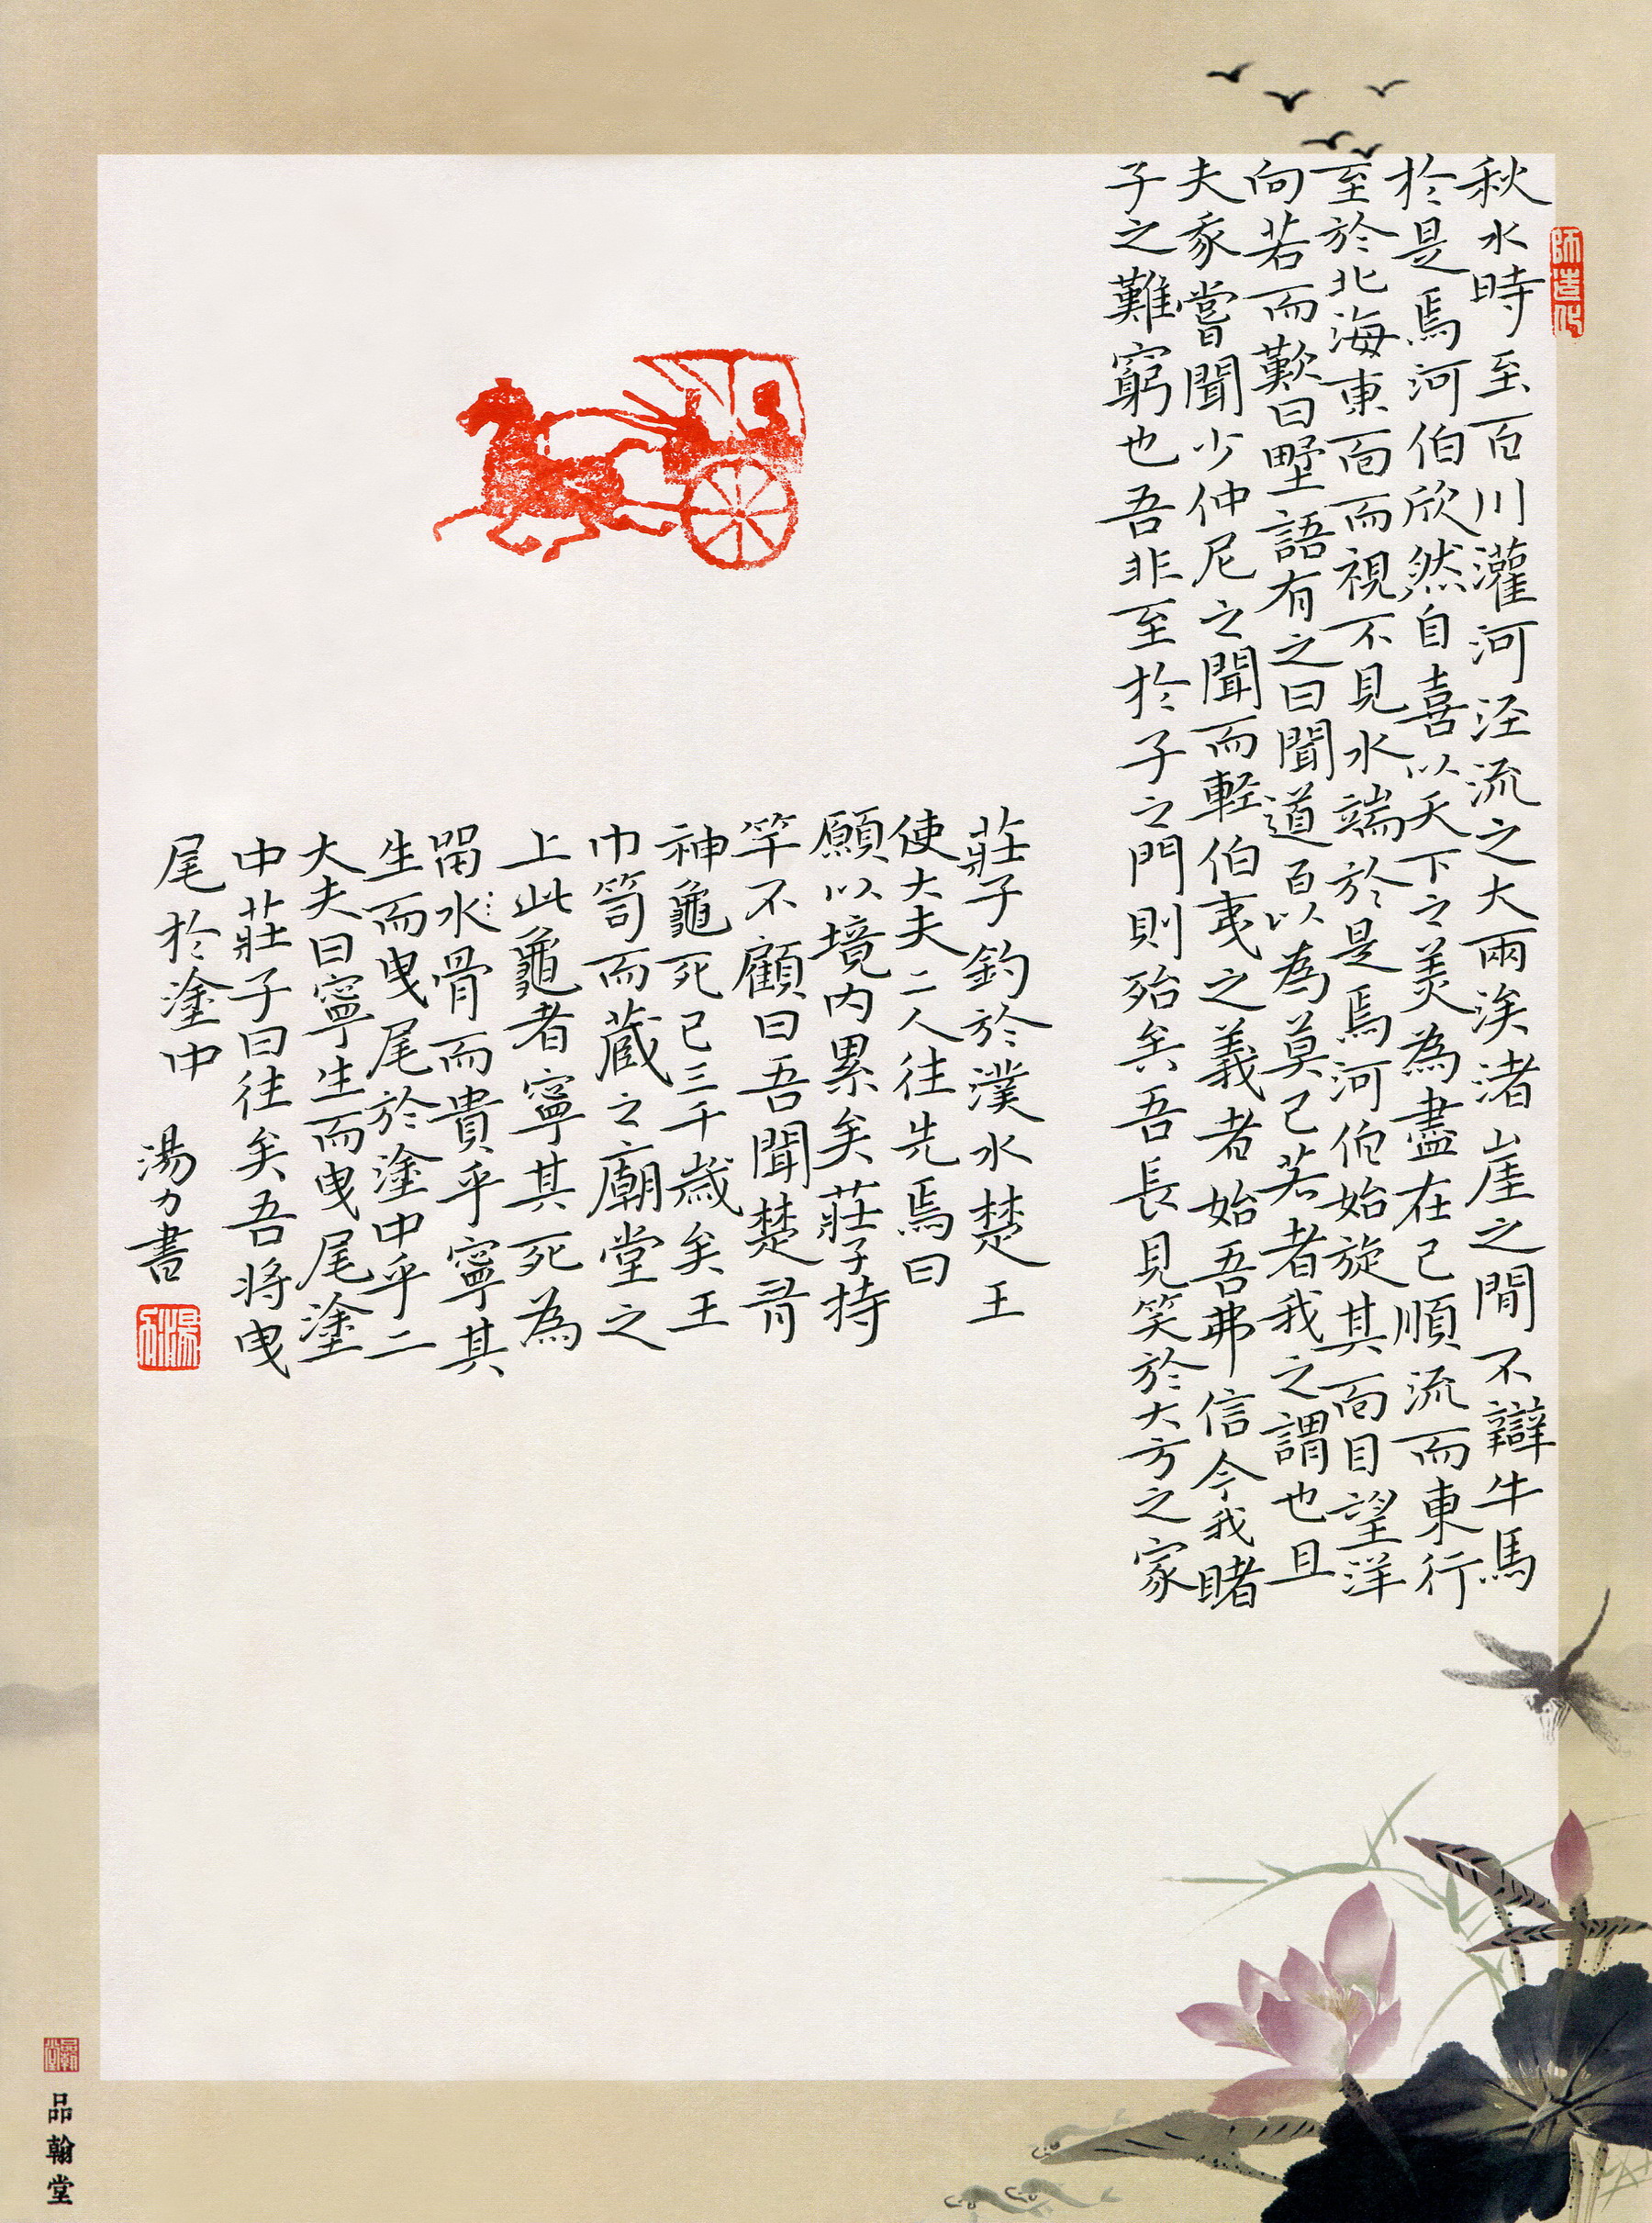 秋水時至百川灌河泾流之大兩涘渚崖之間不辯牛馬
於是焉河伯欣然自喜以天下之美為盡在己順流而東行
至於北海東面而視不見水端於是焉河伯始旋其面目望洋
向若而歎曰野語有之曰聞道百以為莫己若者我之謂也且
夫我嘗聞少仲尼之聞而軽伯夷之義者始吾弗信今我睹
子之難窮也吾非至於子之門則殆矣吾長見笑於大方之家
師造化
莊子釣於濮水楚王
使大夫二人往先焉曰
願以境内累矣莊子持
竿不顧曰吾聞楚有
神龜死已三千歲矣王
巾笥而蔵之廟堂之
上此龜者寧其死為
留水骨而貴乎寧其
生而曳尾於塗中乎二
大夫曰寧生而曳尾塗
中莊子曰往矣吾将曳
尾於塗中 湯力書
品翰堂